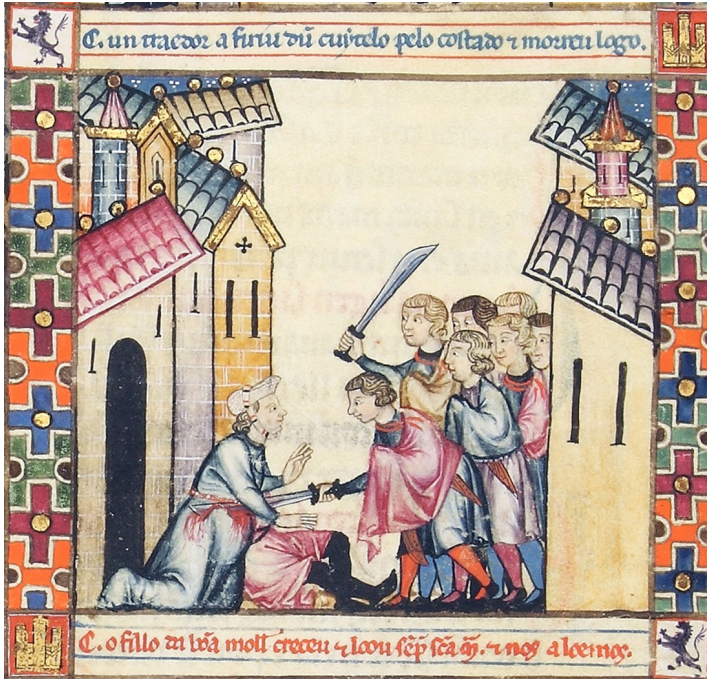 C. un traedor a firiu dũ cuytelo pelo costado ⁊ morreu logo.
C. o fillo da bõa moll̃ creceu ⁊ loou sẽp̃ sc̃a m̃. ⁊ nos a loemos.